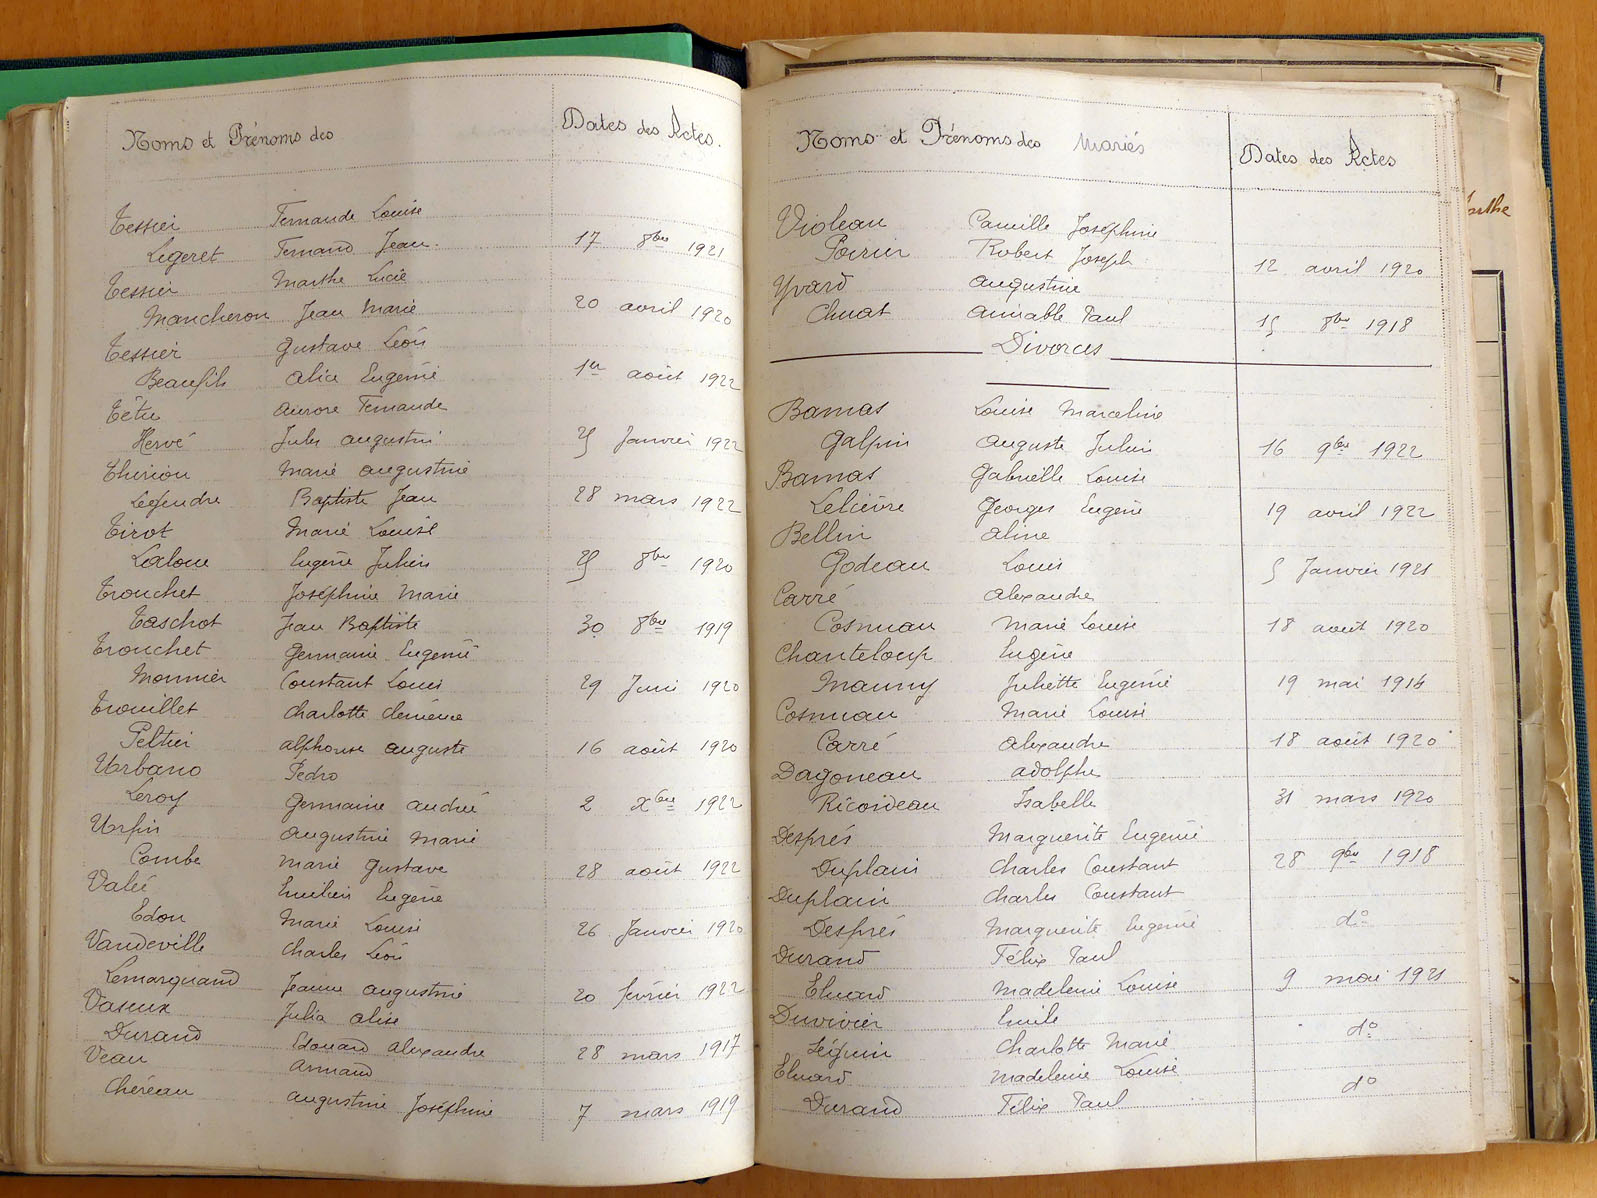 Noms et Prénoms des Dates des Actes.
Tessier Fernande Louise
Legeret Fernand Jean. 17 8bre 1921
Tessier Marthe Lucie
Mancheron Jean Marie 20 avril 1920
Tessier Gustave Léon
Beaufils Alice Eugénie 1er août 1922
Têtu Aurore Fernande
Hervé Jules Augustin 25 Janvier 1922
Thirion Marie Augustine
Legendre Baptiste Jean 28 mars 1922
Tirot Marie Louise
Laloue Eugène Julien 25 8bre 1920
Trouchet Joséphine Marie
Taschot Jean Baptiste 30 8bre 1919
Trouchet Germaine Eugénie
Monnier Constant Louis 29 Juin 1920
Trouillet Charlotte Clémence
Peltier Alphonse Auguste 16 août 1920
Urbano Pedro
Leroy Germaine Andrée 2 Xbre 1922
Urfin Augustine Marie
Combe Marie Gustave 28 août 1922
Valée Emilien Eugène
Edon Marie Louise 26 Janvier 1920
Vandeville Charles Léon
Lemarquand Jeanne Augustine 20 février 1922
Vaseux Julia Alise
Durand Edouard Alexandre 28 mars 1917
Veau Armand
Chéreau Augustine Joséphine 7 mars 1919
Noms et Prénoms des Mariés Dates des Actes
Violeau Camille Joséphine
Poirier Robert Joseph 12 avril 1920
Yvard Augustine
Chuat Aimable Paul 15 8bre 1918
Divorces
Bamas Louise Marceline
Galpin Auguste Julien 16 9bre 1922
Bamas Gabrielle Louise
Lelièvre Georges Eugène 19 avril 1922
Bellin Aline
Godeau Louis 5 Janvier 1921
Carré Alexandre
Cosnuau Marie Louise 18 août 1920
Chanteloup Eugène
Mauny Juliette Eugénie 19 mai
Cosnuau Marie Louise
Carré Alexandre 18 août 1920
Dagoneau Adolphe
Ricoideau Isabelle 31 mars 1920
Després Marguerite Eugénie
Duplain Charles Constant 28 9bre 1918
Duplain Charles Constant
Després Marguerite Eugénie do
Durand Félix Paul
Eluard Madeleine Louise 9 mai 1921
Duvivier Emile
Séguin Charlotte Marie do
Eluard Madeleine Louise
Durand Félix Paul do